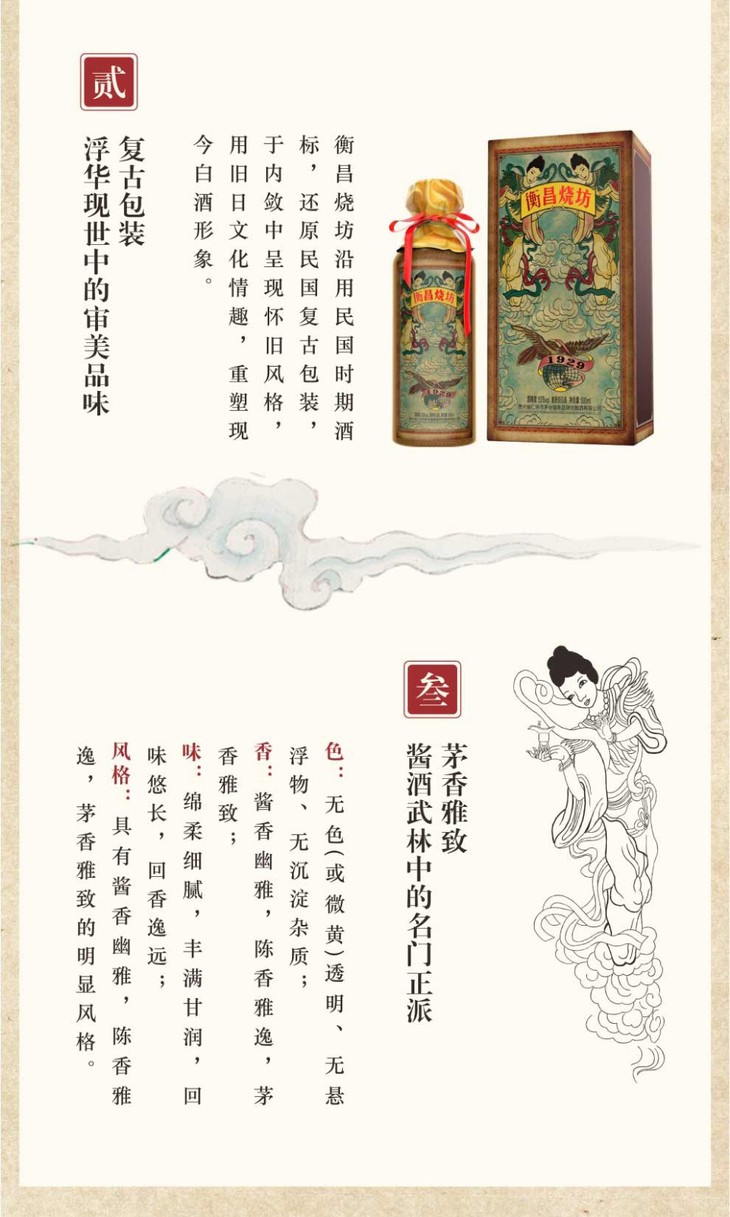 贰
复古包装
浮华现世中的审美品味
衡昌烧坊沿用民国时期酒
标，还原民国复古包装，
于内敛中呈现怀旧风格，
用旧日文化情趣，重塑现
今白酒形象。
衡昌烧坊
1929
衡昌烧坊
1929
叁
茅香雅致
酱酒武林中的名门正派
色：无色(或微黄)透明、无悬
浮物、无沉淀杂质；
香：酱香幽雅，陈香雅逸，茅
香雅致；
味：绵柔细腻，丰满甘润，回
味悠长，回香逸远；
风格：具有酱香幽雅，陈香雅
逸，茅香雅致的明显风格。